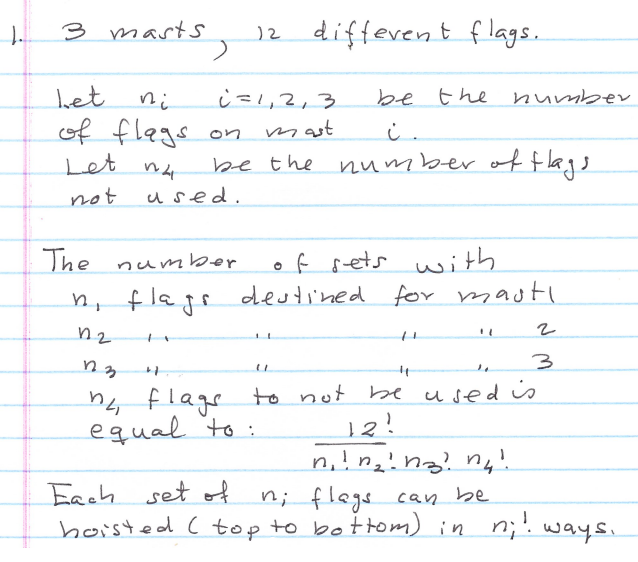 1. 3 masts, 12 different flags.
Let ni i=1,2,3 be the number
of flags on mast i.
Let n4 be the number of flags
not used.
The number of sets with
n1 flags destined for mast 1
n2 " " " " 2
n3 " " " " 3
n4 flags to not be used is
equal to: 12!
n1! n2! n3! n4!
Each set of ni flags can be
hoisted (top to bottom) in ni! ways.